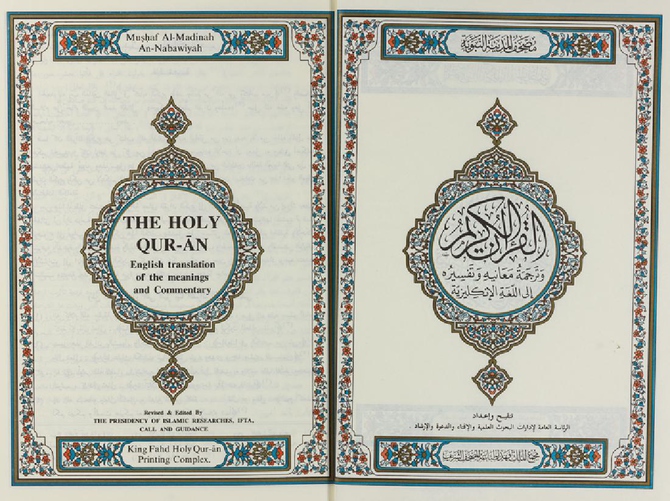 Muṣḥaf Al-Madinah
An-Nabawiyah
THE HOLY
QUR-ĀN
English translation
of the meanings
and Commentary
Revised & Edited By
THE PRESIDENCY OF ISLAMIC RESEARCHES, IFTA,
CALL AND GUIDANCE
King Fahd Holy Qur-ān
Printing Complex.
مصحف المدينة النبوية
القرآن الكريم
وترجمة معانيه وتفسيره
إلى اللغة الإنكليزية
تنقيح وإعداد
الرئاسة العامة لإدارات البحوث العلمية والإفتاء والدعوة والإرشاد
مجمع الملك فهد لطباعة المصحف الشريف